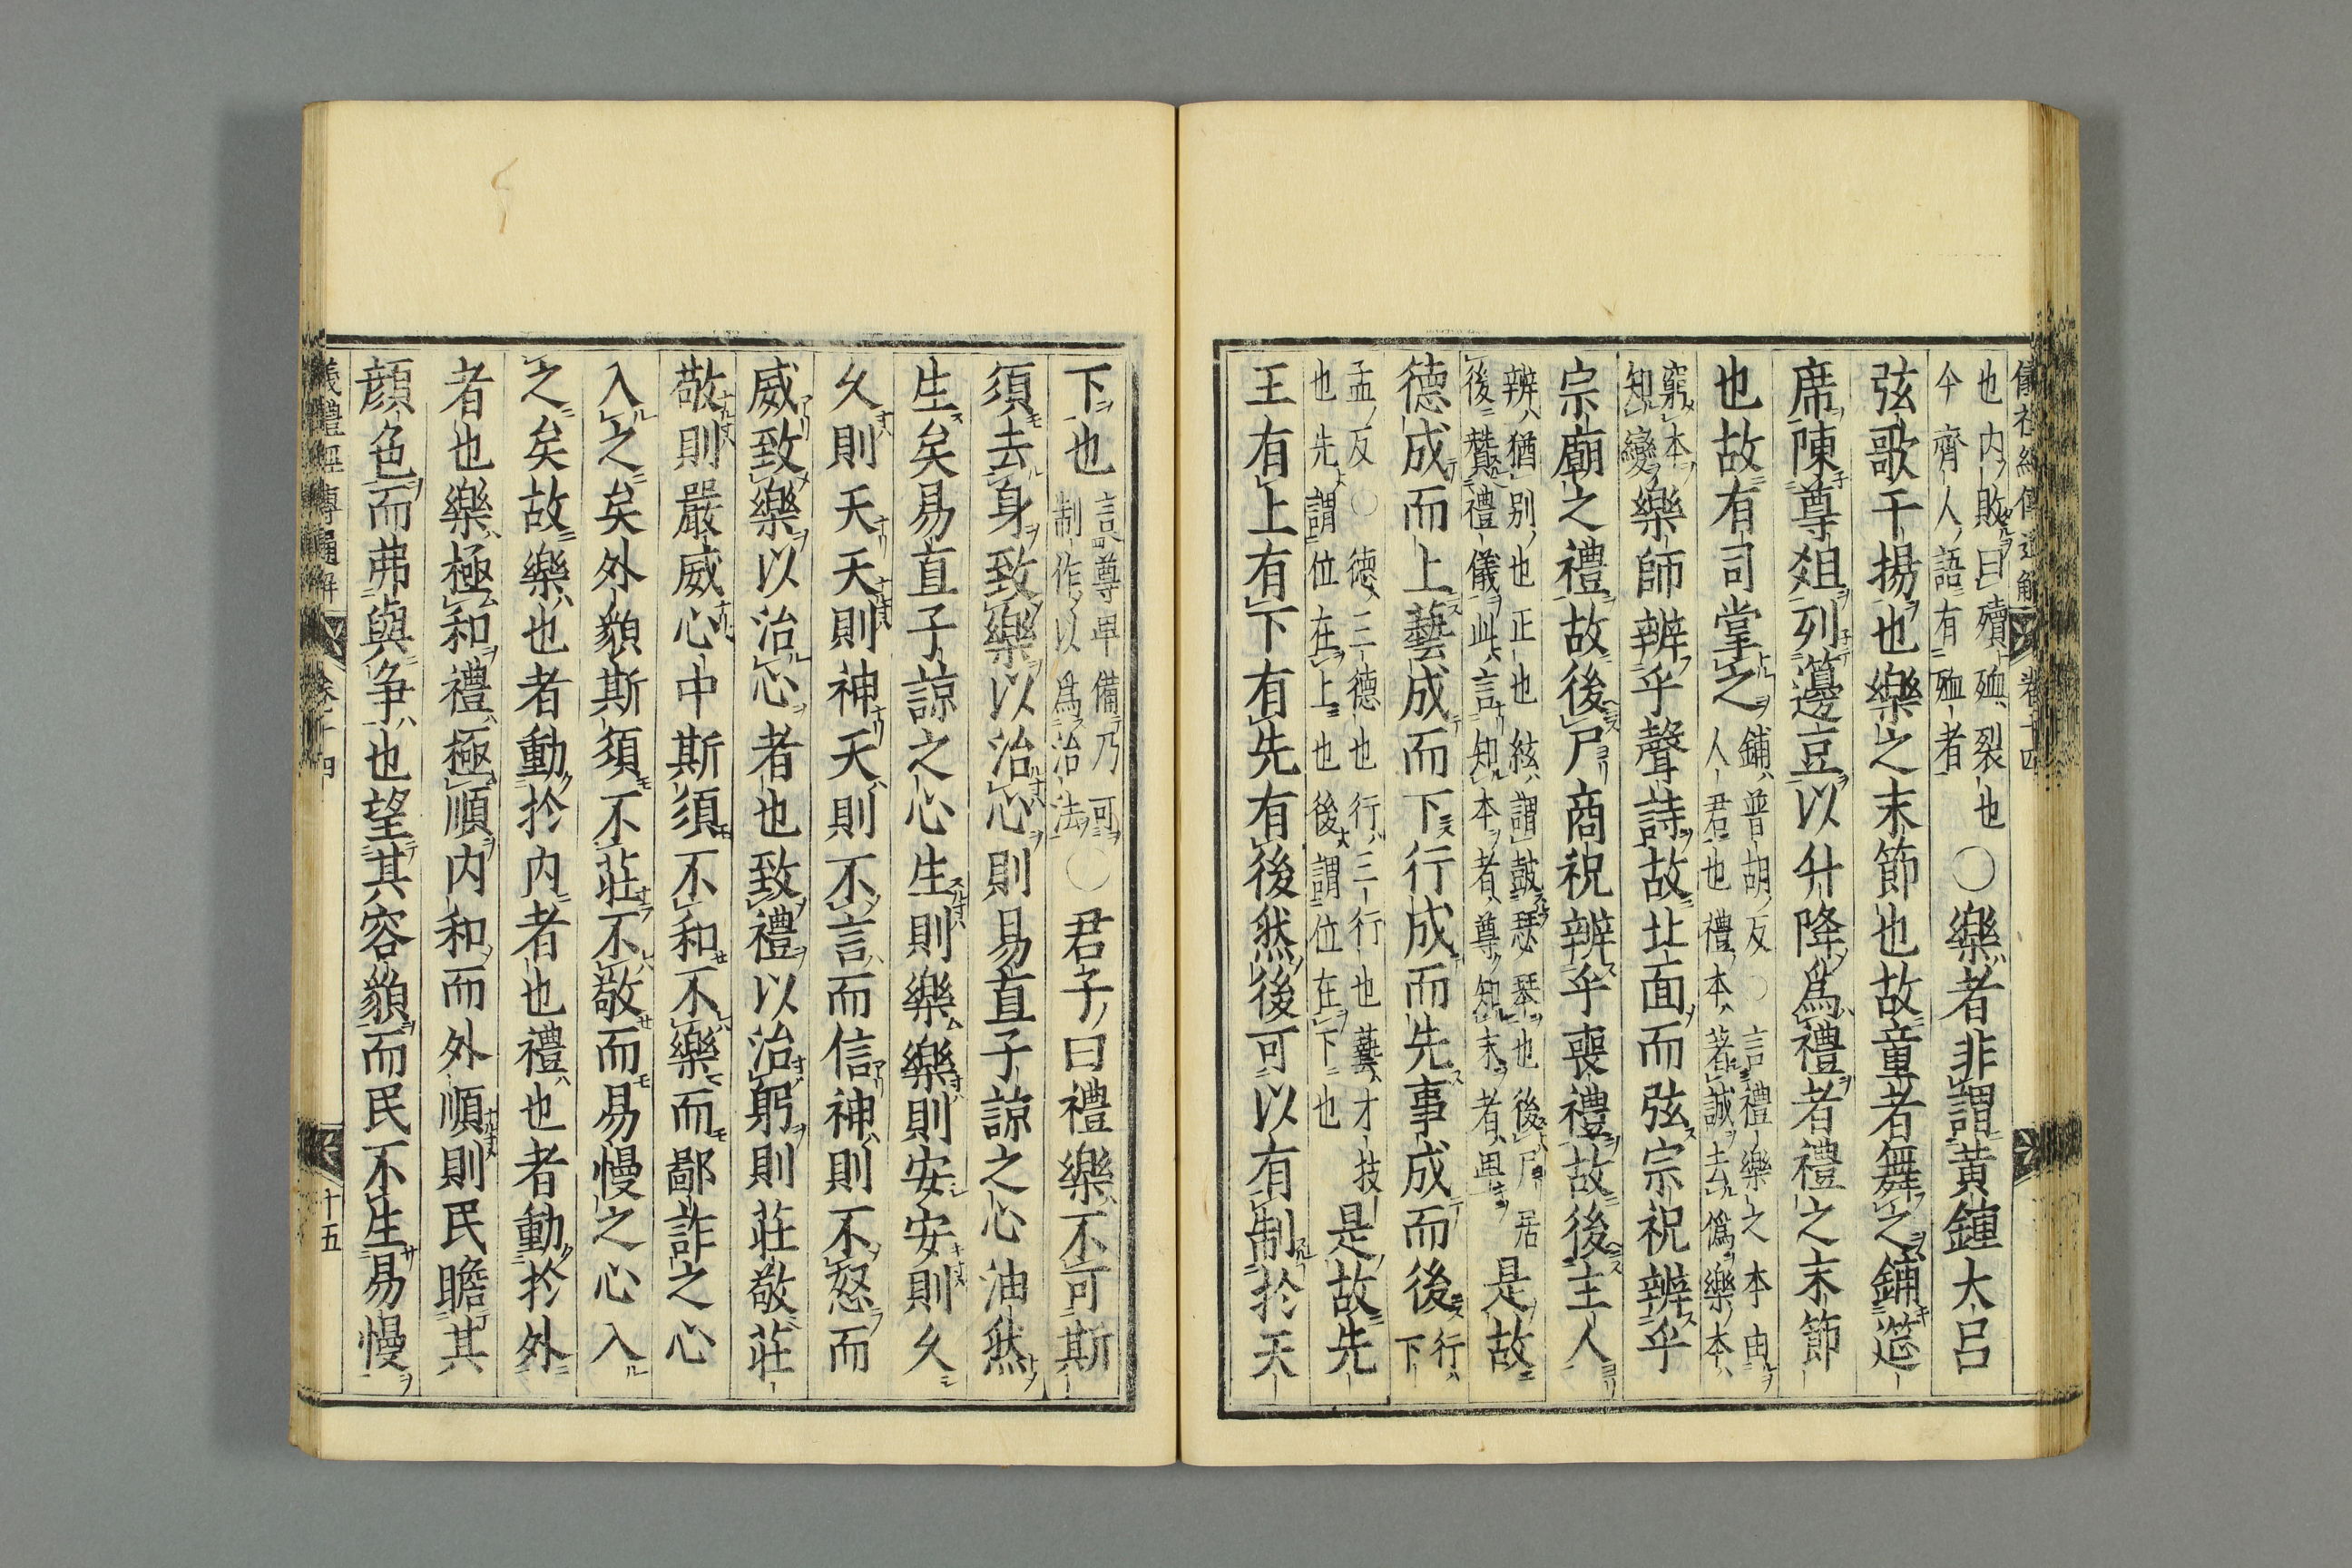 儀禮經傳通解 卷十四
也内敗曰殰殈裂也
今齊人語有殈者
○樂者非謂黃鍾大吕
弦歌干揚也樂之末節也故童者舞之鋪筵
席陳尊爼列籩豆以升降爲禮者禮之末節
也故有司掌之
鋪普胡反○言禮樂之本由
人君也禮本著誠去僞樂本
窮本
知變
樂師辨乎聲詩故北面而弦宗祝辨乎
宗廟之禮故後尸商祝辨乎喪禮故後主人
辨猶别也正也絃謂鼓瑟琴也後尸居
後贊禮儀此言知本者尊知末者卑
是故
德成而上藝成而下行成而先事成而後
行
下
孟反○德三德也行三行也藝才技
也先謂位在上也後謂位在下也
是故先
王有上有下有先有後然後可以有制於天
下也
言尊卑備乃可
制作以爲治法
○君子曰禮樂不可斯
須去身致樂以治心則易直子諒之心油然
生矣易直子諒之心生則樂樂則安安則久
久則天天則神天則不言而信神則不怒而
威致樂以治心者也致禮以治躬則莊敬莊
敬則嚴威心中斯須不和不樂而鄙詐之心
入之矣外貌斯須不莊不敬而易慢之心入
之矣故樂也者動於内者也禮也者動於外
者也樂極和禮極順内和而外順則民瞻其
顔色而弗與争也望其容貌而民不生易慢
儀禮經傳通解 卷十四 十五